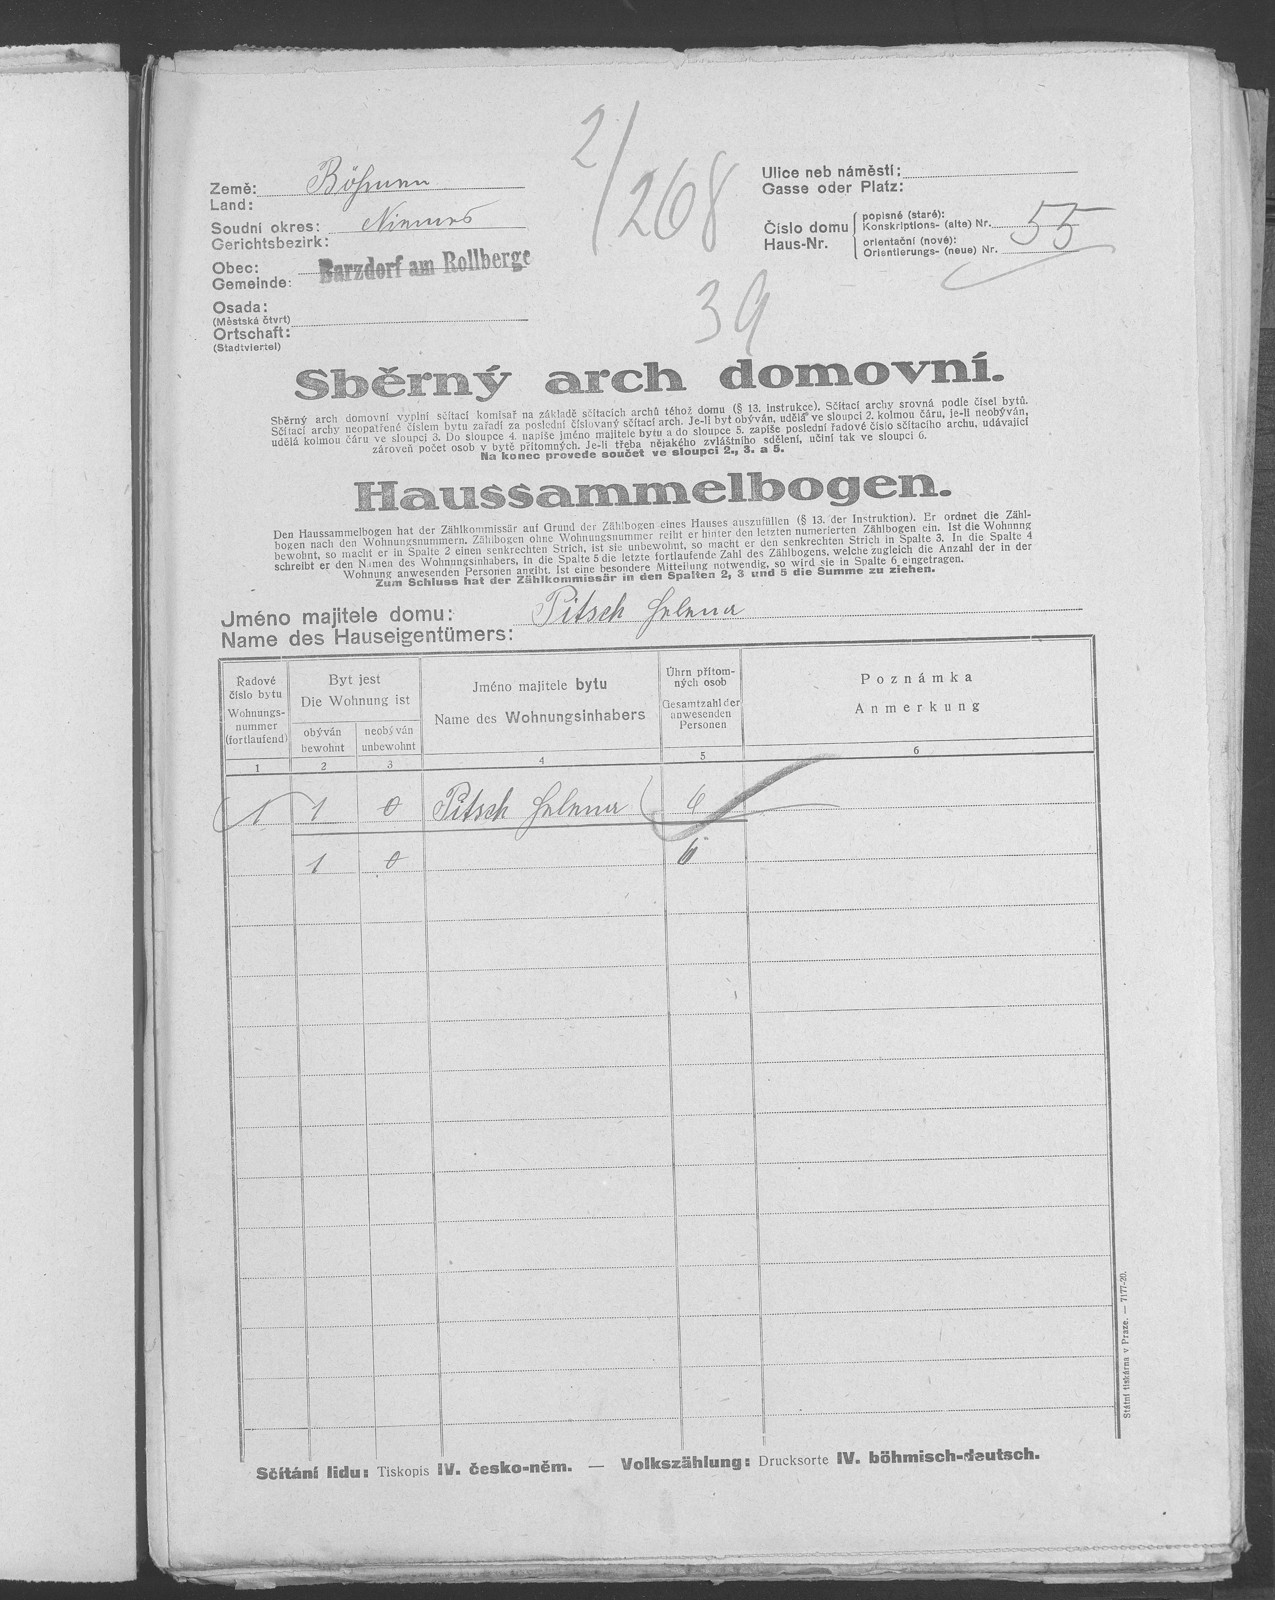 2/268
39
Země: Böhmen
Land:
Soudní okres: Niemes
Gerichtsbezirk:
Obec: Barzdorf am Rollberge
Gemeinde:
Osada:
(Městská čtvrt)
Ortschaft:
(Stadtviertel)
Ulice neb náměstí:
Gasse oder Platz:
Číslo domu popisné (staré):
Haus-Nr. Konskriptions- (alte) Nr. 55
orientační (nové):
Orientierungs- (neue) Nr.
Sběrný arch domovní.
Sběrný arch domovní vyplní sčítací komisař na základě sčítacích archů téhož domu (§ 13. instrukce). Sčítací archy srovná podle čísel bytů.
Sčítací archy neopatřené číslem bytu zařadí za poslední číslovaný sčítací arch. Je-li byt obýván, udělá ve sloupci 2. kolmou čáru, je-li neobýván,
udělá kolmou čáru ve sloupci 3. Do sloupce 4. napíše jméno majitele bytu a do sloupce 5. zapíše poslední řadové číslo sčítacího archu, udávající
zároveň počet osob v bytě přítomných. Je-li třeba nějakého zvláštního sdělení, učiní tak ve sloupci 6.
Na konec provede součet ve sloupci 2., 3. a 5.
Haussammelbogen.
Den Haussammelbogen hat der Zählkommissär auf Grund der Zählbogen eines Hauses auszufüllen (§ 13. der Instruktion). Er ordnet die Zähl-
bogen nach den Wohnungsnummern. Zählbogen ohne Wohnungsnummer reiht er hinter den letzten numerierten Zählbogen ein. Ist die Wohnung
bewohnt, so macht er in Spalte 2 einen senkrechten Strich, ist sie unbewohnt, so macht er den senkrechten Strich in Spalte 3. In die Spalte 4
schreibt er den Namen des Wohnungsinhabers, in die Spalte 5 die letzte fortlaufende Zahl des Zählbogens, welche zugleich die Anzahl der in der
Wohnung anwesenden Personen angibt. Ist eine besondere Mitteilung notwendig, so wird sie in Spalte 6 eingetragen.
Zum Schluss hat der Zählkommissär in den Spalten 2, 3 und 5 die Summe zu ziehen.
Jméno majitele domu: Pitsch Helena
Name des Hauseigentümers:
Řadové číslo bytu
Wohnungs-nummer (fortlaufend)
Byt jest
Die Wohnung ist
obýván
bewohnt
neobýván
unbewohnt
Jméno majitele bytu
Name des Wohnungsinhabers
Úhrn přítom-ných osob
Gesamtzahl der anwesenden Personen
Poznámka
Anmerkung
1 2 3 4 5 6
1 1 0 Pitsch Helena 6
1 0 6
Státní tiskárna v Praze. — 7177-20.
Sčítání lidu: Tiskopis IV. česko-něm. — Volkszählung: Drucksorte IV. böhmisch-deutsch.